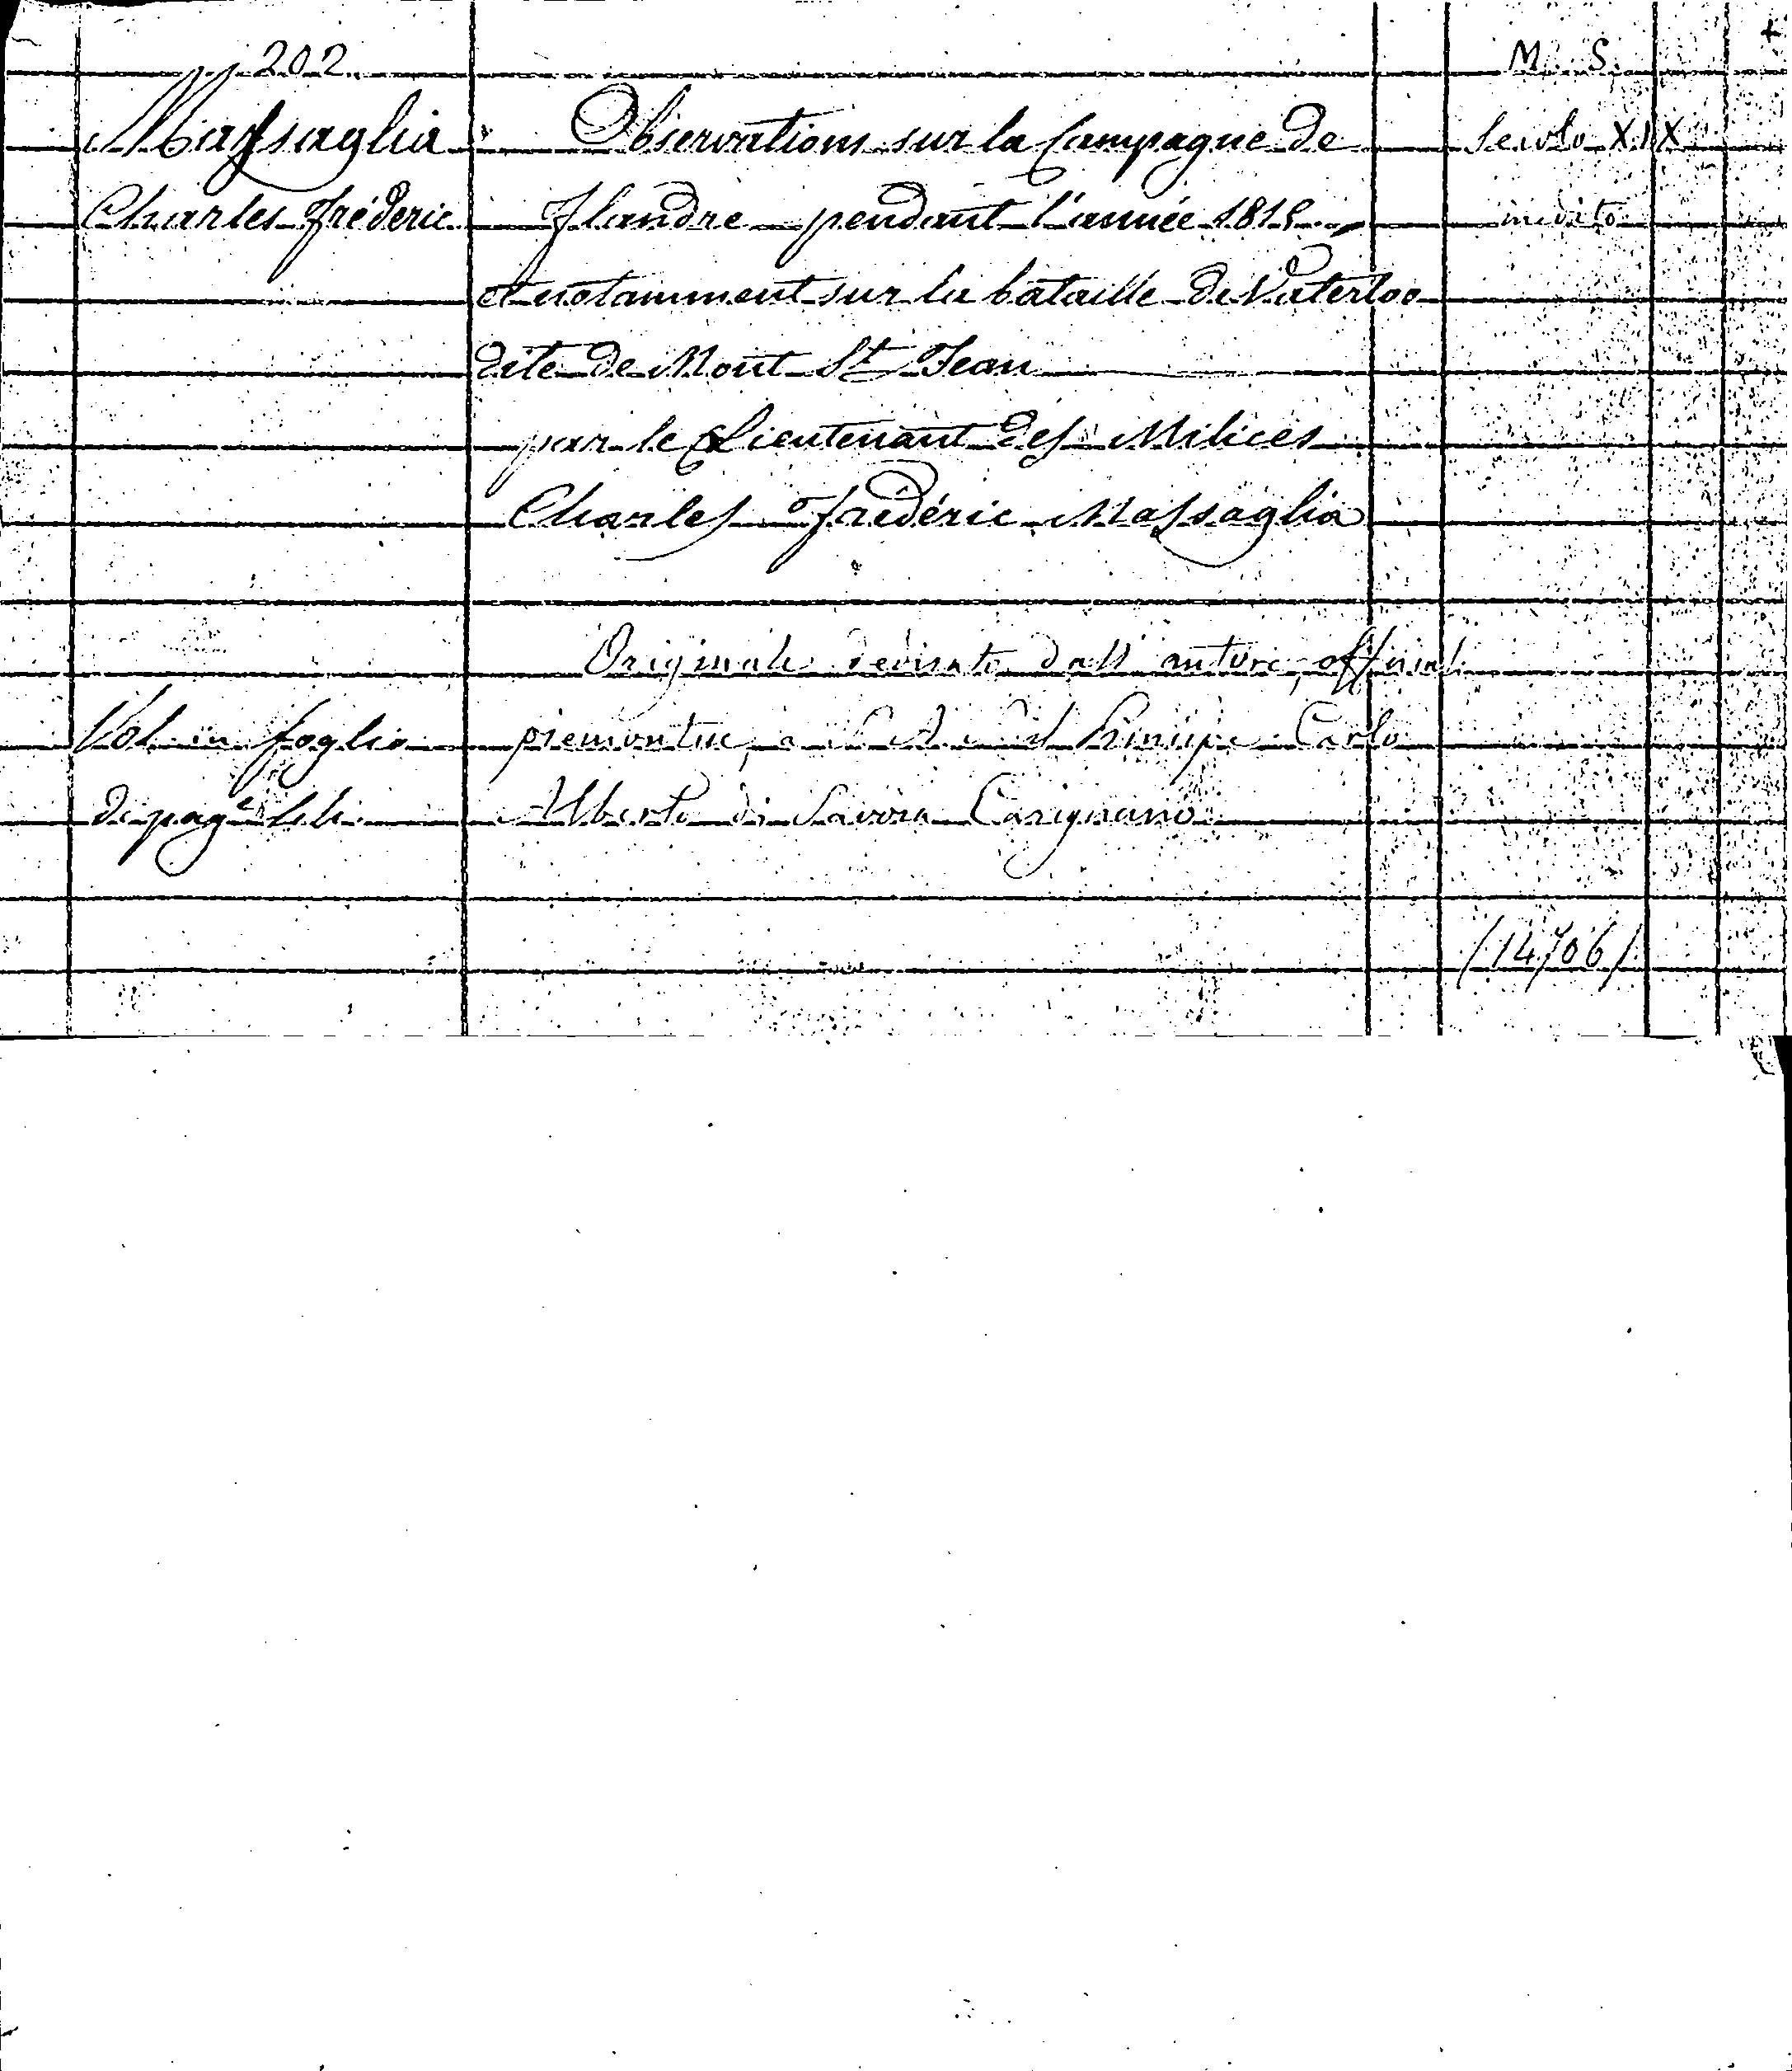 202
M. S.
Massaglia
Charles Fréderic
Observations sur la Campagne de
Flandre pendant l'année 1815
et notamment sur la bataille de Vaterloo
dite de Mont St Jean
par le Lieutenant des Milices
Charles Frédéric Massaglia
Secolo XIX
inedito
Originale dedicato dall' autore, officiale
piemontese, a S. A. il Principe Carlo
Alberto di Savoia Carignano
Vol. in foglio
di pag.e
(14706)